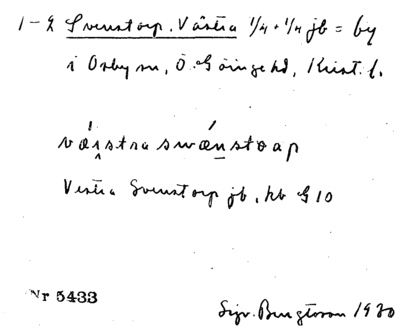 1-2 Svenstorp, Västra 1/4 + 1/4 jb = by
i Osby sn, Ö. Göinge hd, Krist. l.
väistraswænstoap
Vestra Svenstorp jb, kb G 10
Nr 5433
Sigv. Bengtsson 1930